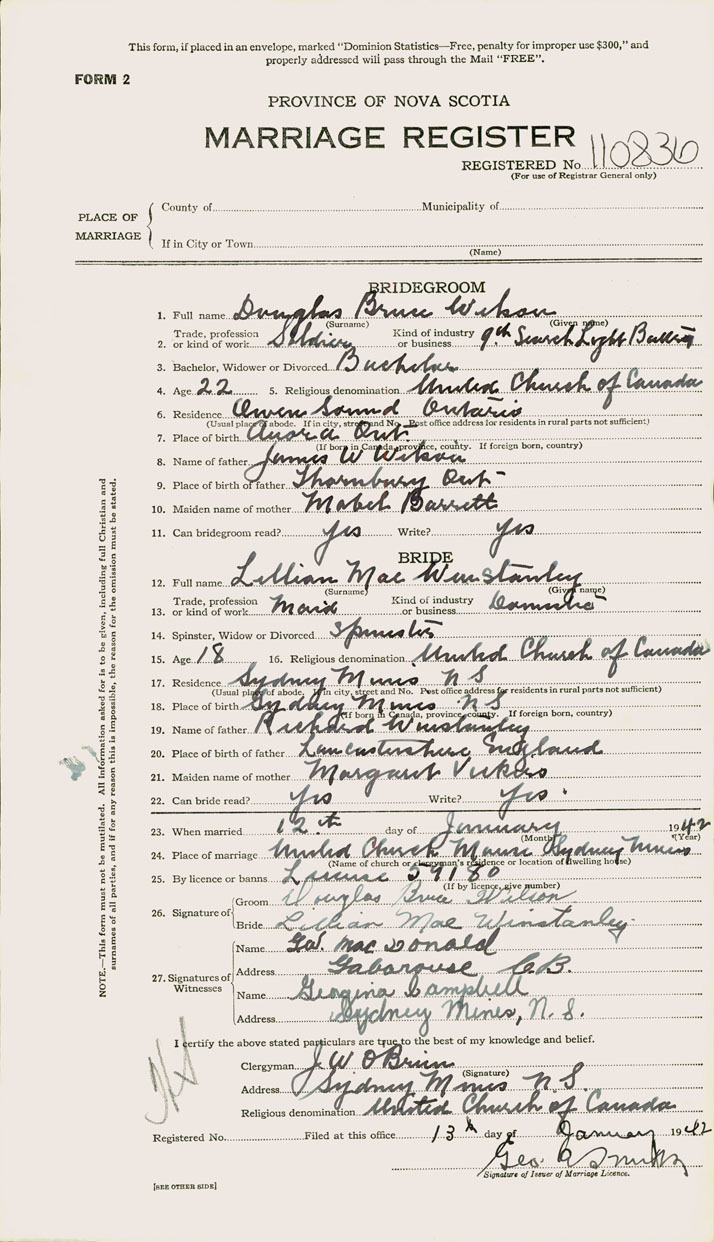 This form, if placed in an envelope, marked "Dominion Statistics—Free, penalty for improper use $300," and
properly addressed will pass through the Mail "FREE".
FORM 2
PROVINCE OF NOVA SCOTIA
MARRIAGE REGISTER
REGISTERED No. 110836
(For use of Registrar General only)
PLACE OF MARRIAGE
County of Municipality of
If in City or Town
(Name)
BRIDEGROOM
1. Full name Douglas Bruce Wilson
(Surname) (Given name)
2. Trade, profession or kind of work Soldier Kind of industry or business 9th Search Light Battery
3. Bachelor, Widower or Divorced Bachelor
4. Age 22 5. Religious denomination United Church of Canada
6. Residence Owen Sound Ontario
(Usual place of abode. If in city, street and No. Post office address for residents in rural parts not sufficient)
7. Place of birth Ont.
(If born in Canada, province, county. If foreign born, country)
8. Name of father James W Wilson
9. Place of birth of father Thornbury Ont
10. Maiden name of mother Mabel Barrett
11. Can bridegroom read? Yes Write? Yes
BRIDE
12. Full name Lillian Mae Winstanley
(Surname) (Given name)
13. Trade, profession or kind of work Maid Kind of industry or business Domestic
14. Spinster, Widow or Divorced Spinster
15. Age 18 16. Religious denomination United Church of Canada
17. Residence Sydney Mines N S
(Usual place of abode. If in city, street and No. Post office address for residents in rural parts not sufficient)
18. Place of birth Sydney Mines N S
(If born in Canada, province, county. If foreign born, country)
19. Name of father Richard Winstanley
20. Place of birth of father Lancastershire England
21. Maiden name of mother Margaret Vickers
22. Can bride read? Yes Write? Yes
23. When married 12th day of January 1942
(Month) (Year)
24. Place of marriage United Church Manse Sydney Mines
(Name of church or clergyman's residence or location of dwelling house)
25. By licence or banns License 59180
(If by licence, give number)
26. Signature of
Groom Douglas Bruce Wilson
Bride Lillian Mae Winstanley
27. Signatures of Witnesses
Name Mac Donald
Address Gabarouse C.B.
Name Georgina Campbell
Address Sydney Mines, N. S.
I certify the above stated particulars are true to the best of my knowledge and belief.
Clergyman J. W. O'Brien
(Signature)
Address Sydney Mines N. S.
Religious denomination United Church of Canada
Registered No. Filed at this office 13th day of January 1942
Geo
Signature of Issuer of Marriage Licence.
[SEE OTHER SIDE]
NOTE.—This form must not be mutilated. All information asked for is to be given, including full Christian and
surnames of all parties, and if for any reason this is impossible, the reason for the omission must be stated.